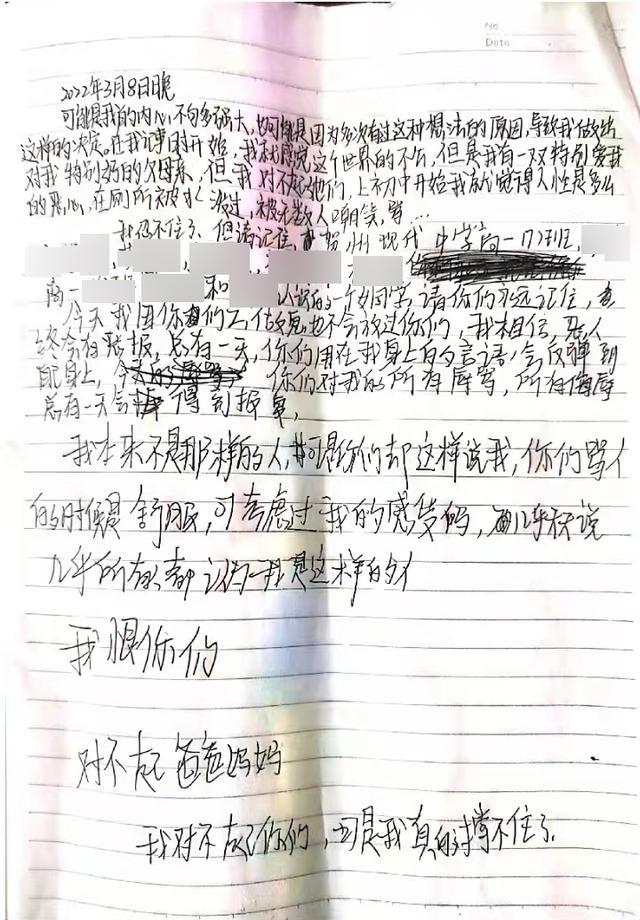 No.
Date
2022年3月8日晚
可能是我的内心不够多强大,也可能是因为多次有过这种想法的原因,导致我做出
这样的决定。在我记事时开始,我就感觉这个世界的不公,但是我有一双特别爱我
对我特别好的父母亲,但我对不起他们,上初中开始我就觉得人性是多么
的恶心,在厕所被水泼过,被无数人嘲笑,骂…
我忍不住了、但请记住,贺州现代中学高一17班,
高一 和 认识的一个女同学,请你们永远记住,
今天我因你们 也不会放过你们,我相信,恶人
终会有恶报,总有一天,你们用在我身上的言语,会反弹到
自己身上,你们对我的所有辱骂,所有侮辱
总有一天会得到报复,
我本来不是那样的人,可是你们却这样说我,你们骂人
的时候是舒服,可考虑过我的感受吗,几乎 说
几乎所有 都认为我是这样的人
我恨你们
对不起爸爸妈妈
我对不起你们,可是我真的撑不住了.